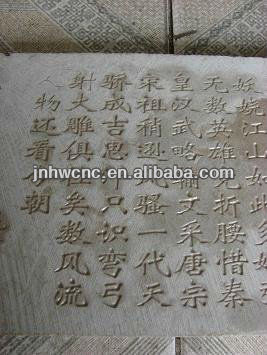 妖娆江山如此多娇引
无数英雄竞折腰惜秦
皇汉武略输文采唐宗
宋祖稍逊风骚一代天
骄成吉思汗只识弯弓
射大雕俱往矣数风流
人物还看今朝
jnhwcnc.en.alibaba.com